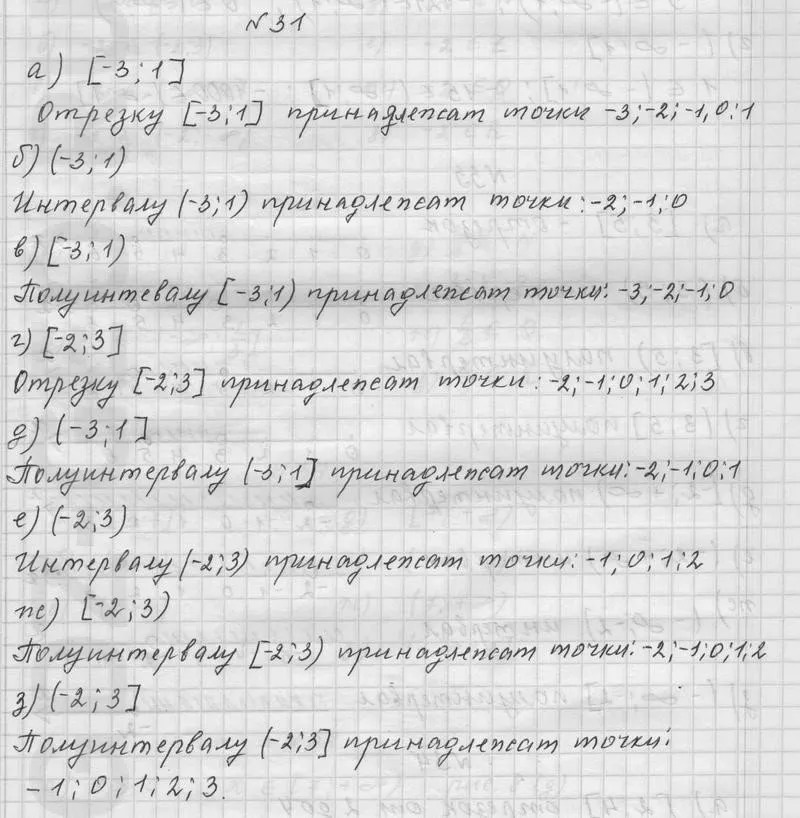 №31
а) [-3; 1]
Отрезку [-3; 1] принадлежат точки -3; -2; -1, 0; 1
б) (-3; 1)
Интервалу (-3; 1) принадлежат точки: -2; -1; 0
в) [-3; 1)
Полуинтевалу [-3; 1) принадлежат точки: -3; -2; -1; 0
г) [-2; 3]
Отрезку [-2; 3] принадлежат точки: -2; -1; 0; 1; 2; 3
д) (-3; 1]
Полуинтервалу (-3; 1] принадлежат точки: -2; -1; 0; 1
е) (-2; 3)
Интервалу (-2; 3) принадлежат точки: -1; 0; 1; 2
ж) [-2; 3)
Полуинтервалу [-2; 3) принадлежат точки: -2; -1; 0; 1; 2
з) (-2; 3]
Полуинтервалу (-2; 3] принадлежат точки:
-1; 0; 1; 2; 3.